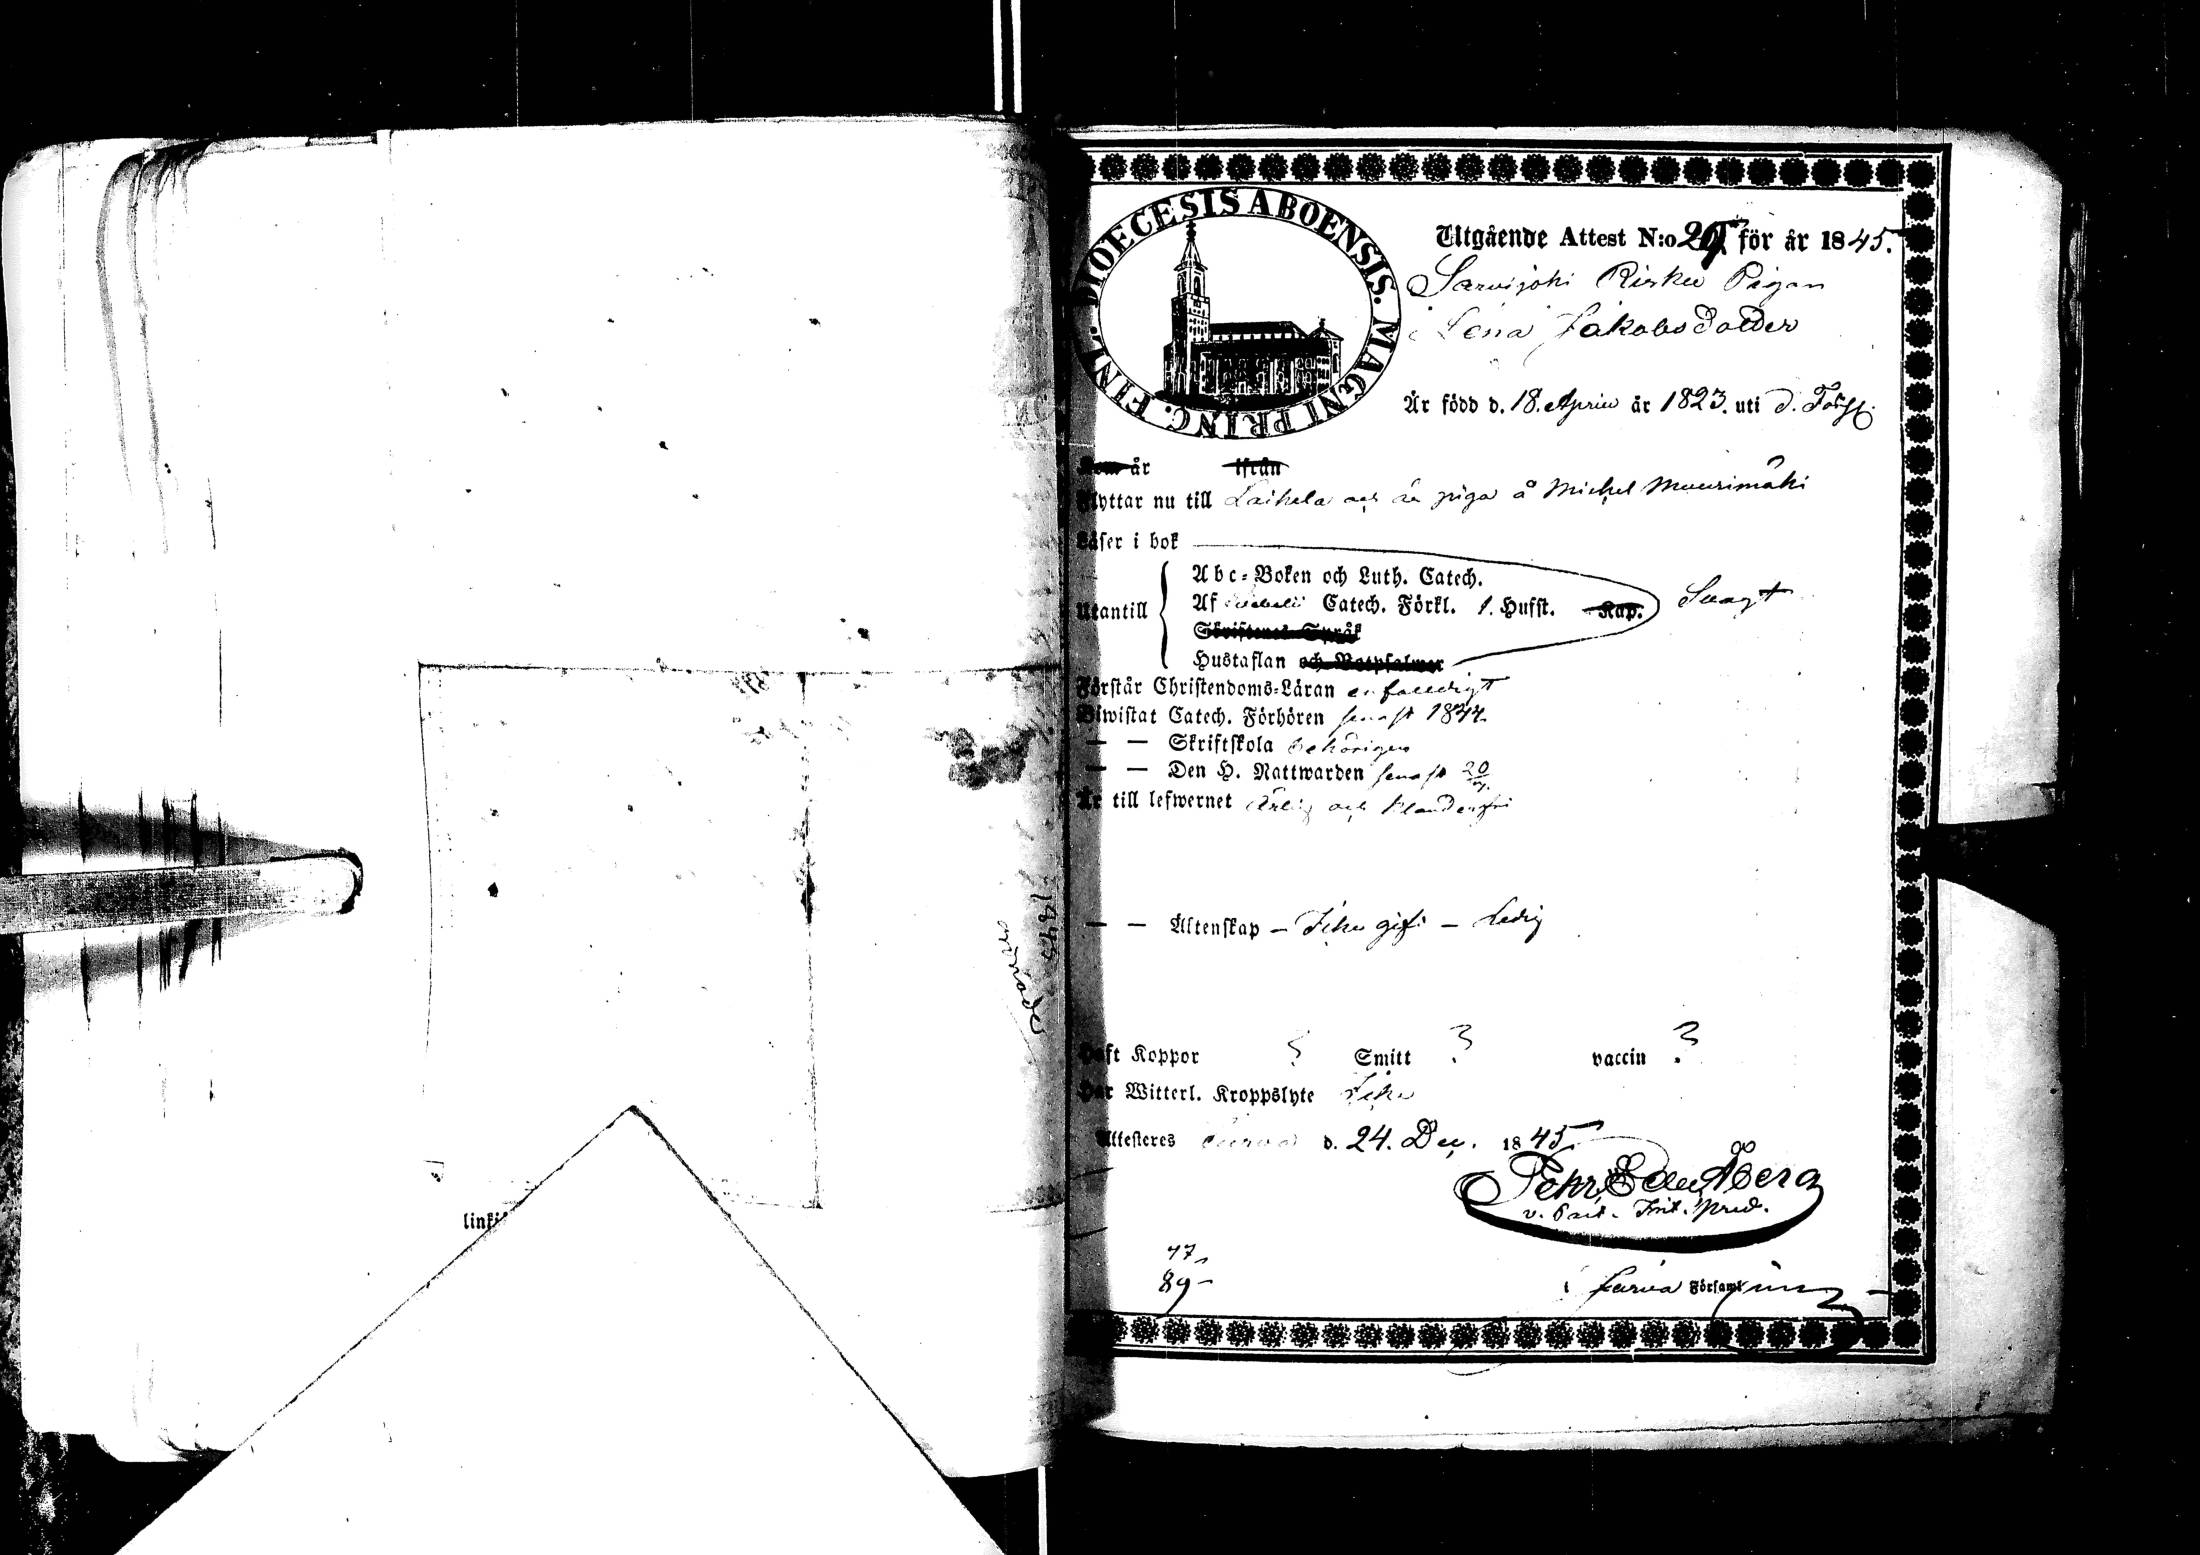 1845
linki
DIOECESIS ABOENSIS. MAGNI PRINC. FINL.
Utgående Attest N:o 29 för år 1845.
Sarvijoki Risku Pigan
Lena Jakobsdotter
Är född d. 18. April år 1823. uti d. Förs.
Kom år ifrån
Flyttar nu till Laihela och är piga å Michel Muurimäki
Läser i bok
Utantill
Abc-Boken och Luth. Catech.
Af Catech. Förkl. 1. Hufst. Kap.
Skriftenes Språk
Hustaflan och Botpsalmer
Svagt
Förstår Christendoms-Läran enfaldigt
Biwistat Catech. Förhören senast 1844
— — Skriftskola behörigen
— — Den H. Nattwarden senast 20
Är till lefwernet Ärlig och klanderfri
— — Äktenskap – Icke gift – Ledig
Haft Koppor ? Smitt ? vaccin ?
Har Witterl. Kroppslyte Icke
Attesteres Jurva d. 24. Dec. 1845
Pehr
v. Past.
47
89
i Jurva Församl